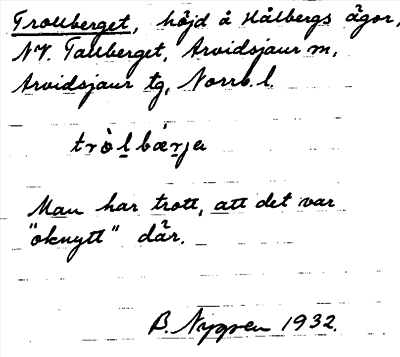 Trollberget, höjd å Hålbergs ägor,
NV. Tallberget, Arvidsjaur m,
Arvidsjaur tg, Norrb. l.
tròlbærja
Man har trott, att det var
"oknytt" där.
B. Nygren 1932.